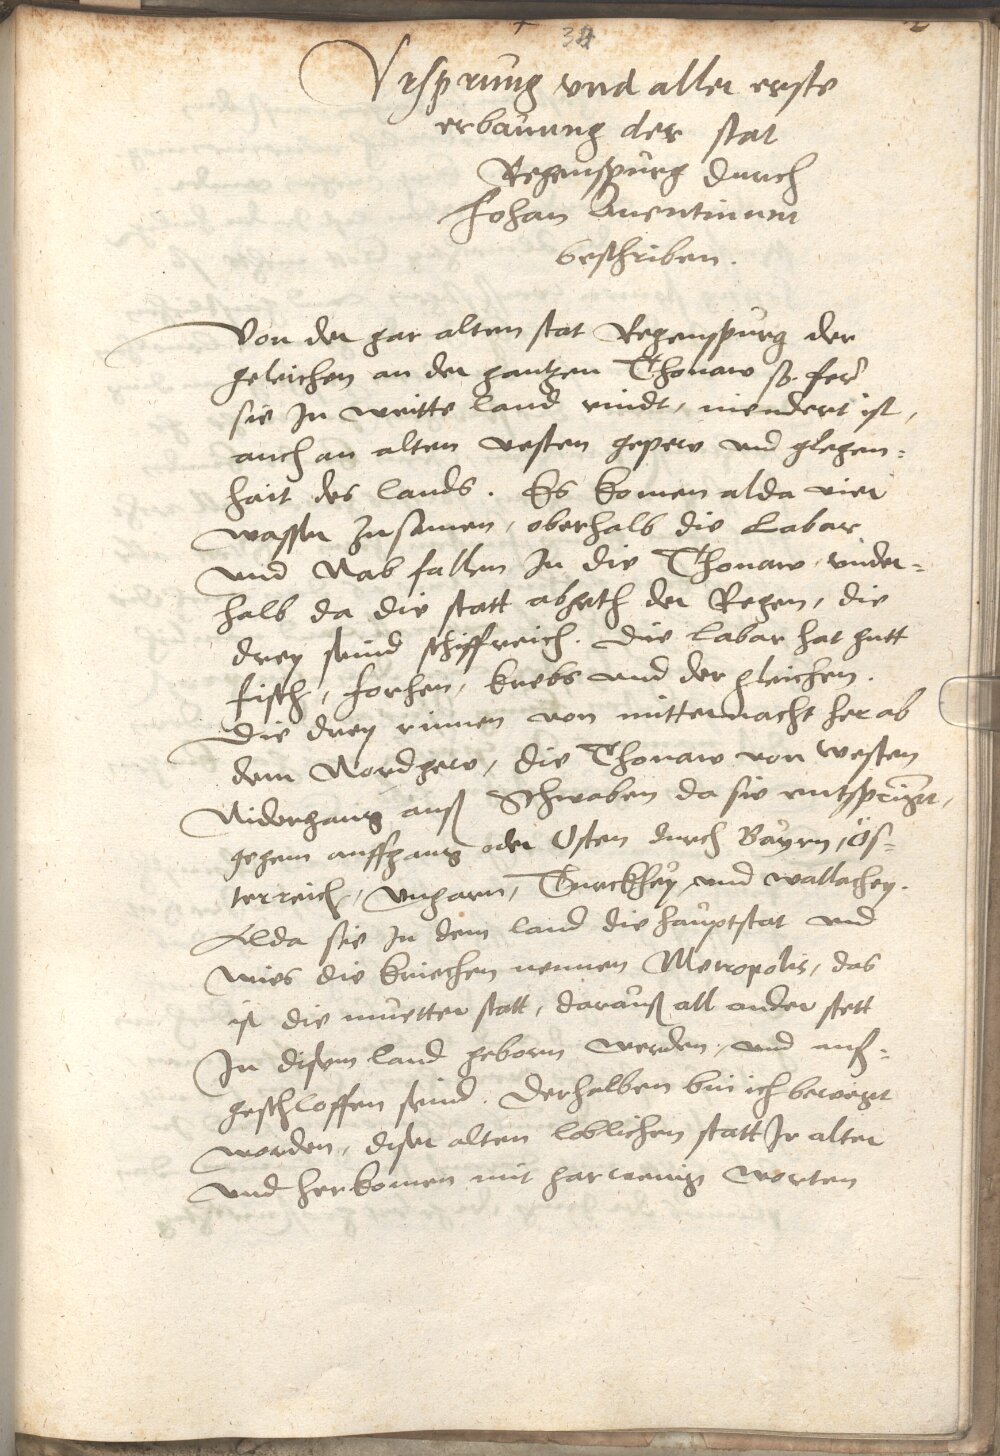 34
Vrsprung vnd aller erste
erbauung der stat
Regenspurg durch
Johan Auentinum
beschriben.
Von der gar alten stat Regenspurg der
geleichen an der gantzen Thonaw so ferr
sie In weitte land rindt, niendert ist,
auch an alten vesten gepew vnd glegen=
hait des lands. Es komen alda vier
wasser zusamen, oberhalb die Labar
vnd Nab fallen In die Thonaw, vnder=
halb da die statt abgeth der Regen, die
drey seind schiffreich. Die labar hat gutt
fisch, forhen, krebs vnd der gleichen.
Die drey rinnen von mitternacht her ab
dem Nordgew, die Thonaw von westen
Nidergang auß Schwaben da sie entspringt,
gegem auffgang oder Osten durch Bayrn, Ös=
terreich, Vngarn, Turckhey vnd wallachey.
Alda sie In dem land die hauptstat vnd
wies die kriechen nennen Metropolis, das
ist die muetter statt, darauß all ander stett
In disem land geborn werden, vnd auß=
geschloffen seind. Derhalben bin ich bewegt
worden, diser alten loblichen statt Ir alter
vnd herkomen mit gar wenig worten